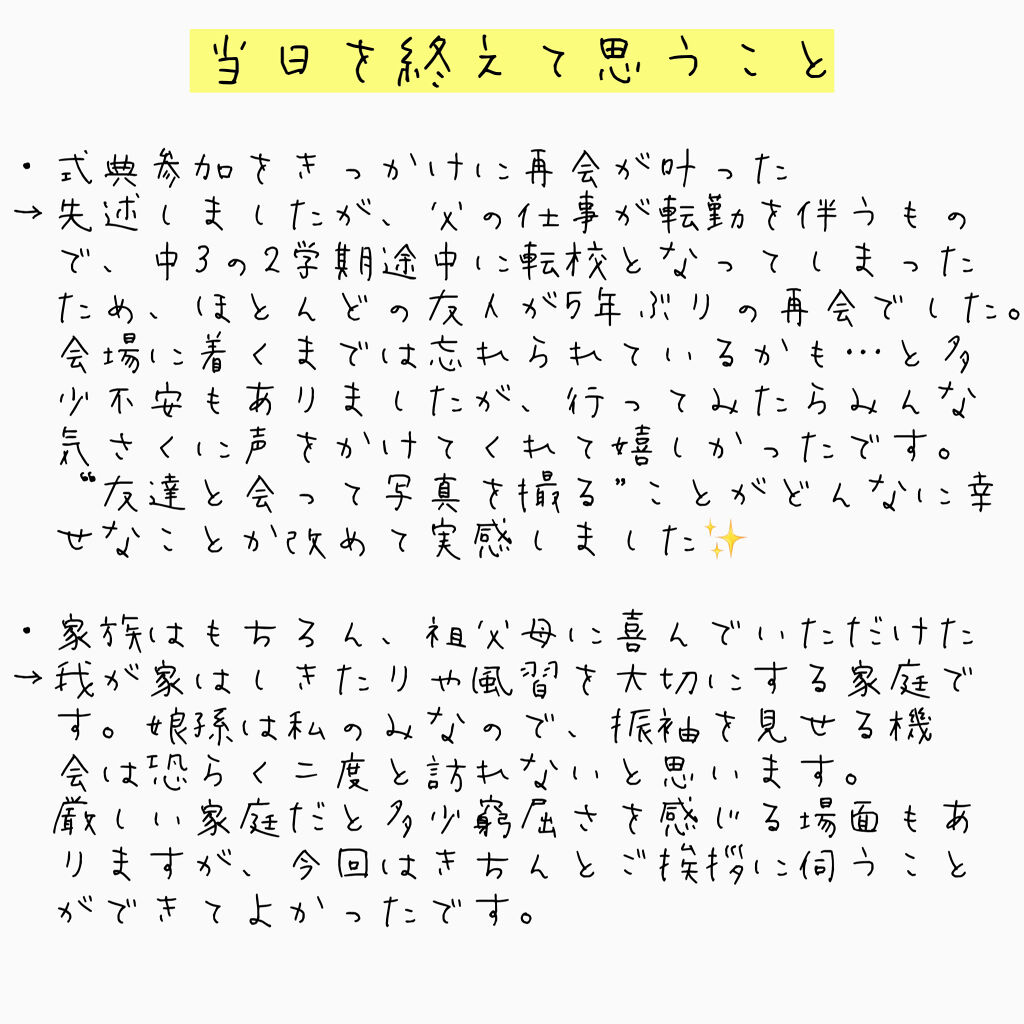 当日を終えて思うこと
・式典参加をきっかけに再会が叶った
→失述しましたが、父の仕事が転勤を伴うもの
で、中3の2学期途中に転校となってしまった
ため、ほとんどの友人が5年ぶりの再会でした。
会場に着くまでは忘れられているかも…と多
少不安もありましたが、行ってみたらみんな
気さくに声をかけてくれて嬉しかったです。
“友達と会って写真を撮る”ことがどんなに幸
せなことか改めて実感しました✨
・家族はもちろん、祖父母に喜んでいただけた
→我が家はしきたりや風習を大切にする家庭で
す。娘孫は私のみなので、振袖を見せる機
会は恐らく二度と訪れないと思います。
厳しい家庭だと多少窮屈さを感じる場面もあ
りますが、今回はきちんとご挨拶に伺うこと
ができてよかったです。